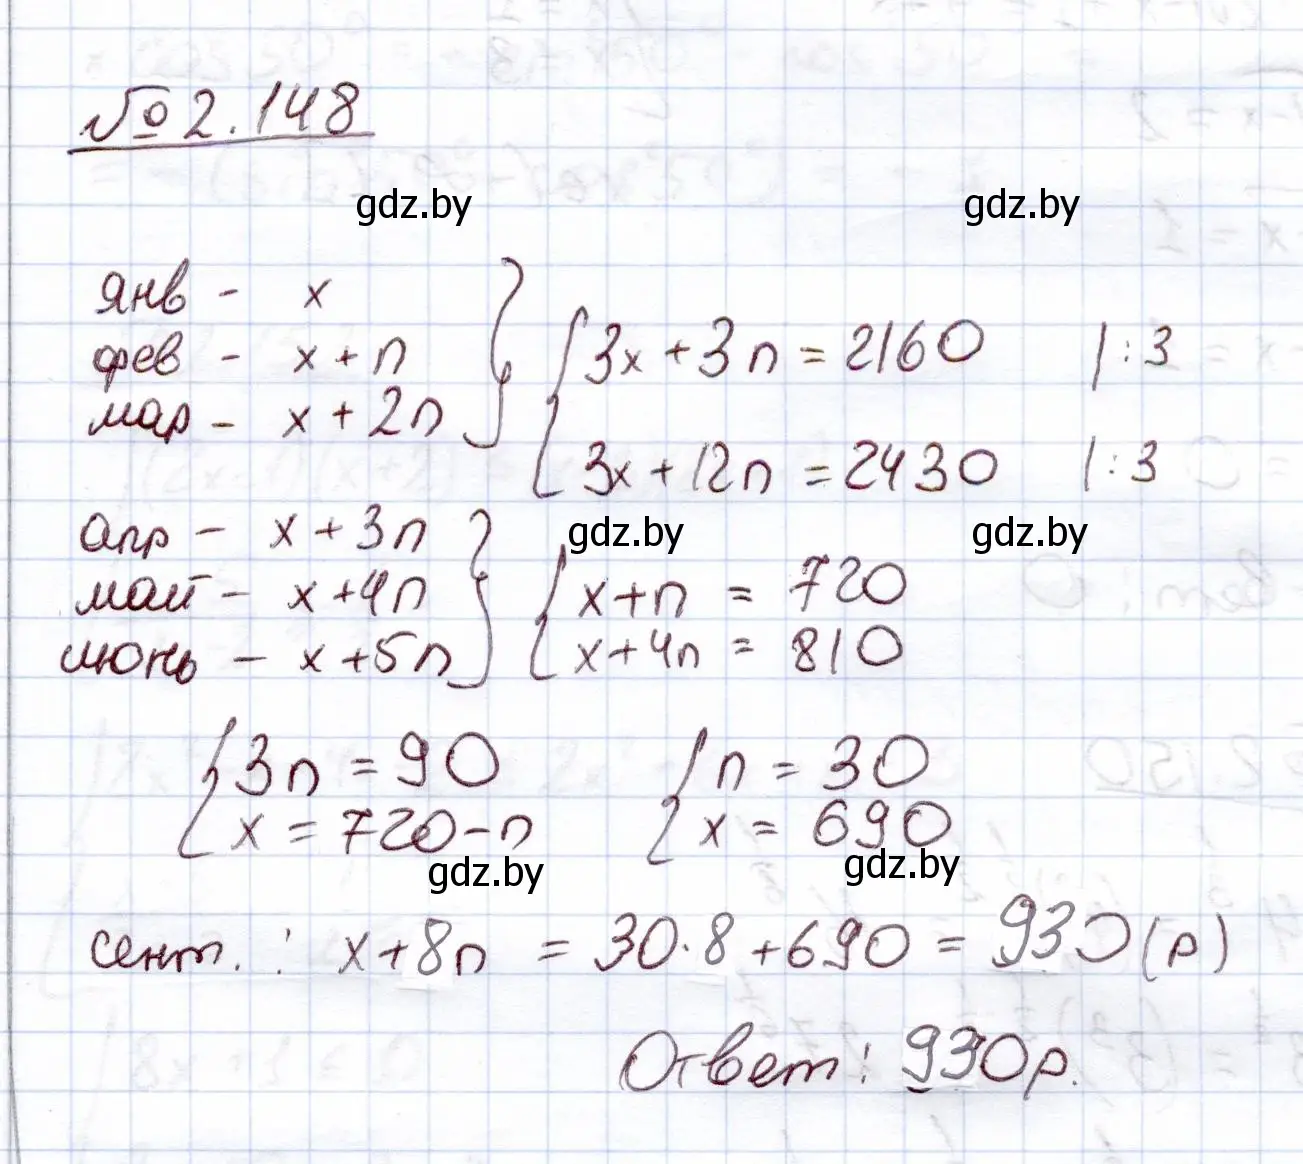 №2.148
gdz.by gdz.by
янв - x
фев - x+n
мар - x+2n
3x+3n=2160 |:3
3x+12n=2430 |:3
gdz.by gdz.by
апр - x+3n
май - x+4n
июнь - x+5n
x+n = 720
x+4n = 810
3n=90
x=720-n
n=30
x=690
gdz.by gdz.by
сент.: x+8n = 30·8+690=930(р)
Ответ: 930р.